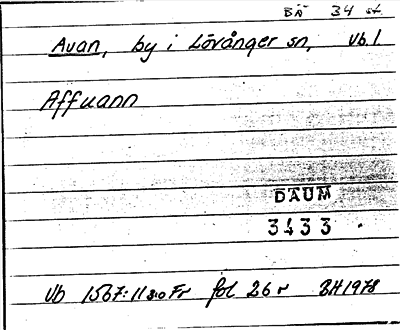 BÄ 34 st.
Avan, by i Lövånger sn, Vb l.
Affuann
DAUM
3433
Vb 1567:11 fol 26 r BH 1978